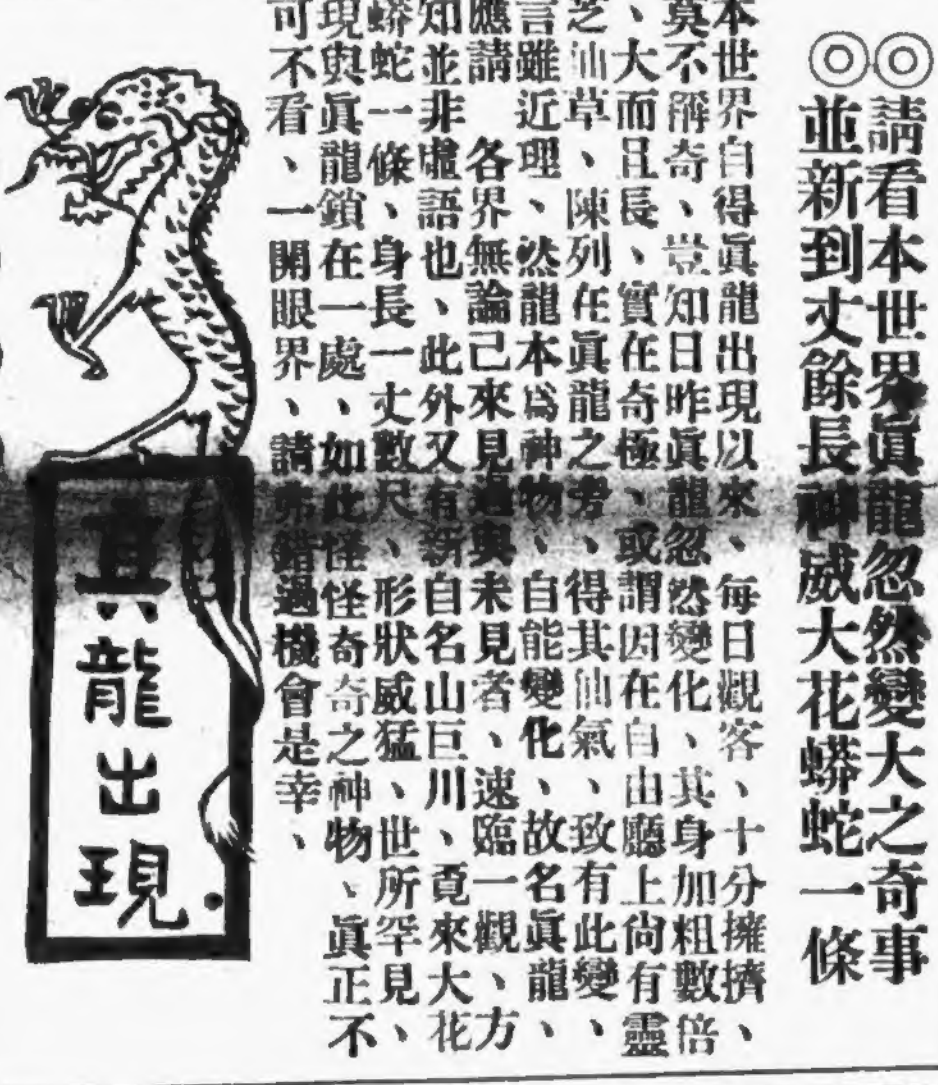 ◎請看本世界眞龍忽然變大之奇事
◎並新到丈餘長神威大花蟒蛇一條
本世界自得眞龍出現以來、每日觀客、十分擁擠、
莫不稱奇、豈知日昨眞龍忽然變化、其身加粗數倍
、大而且長、實在奇極、或謂因在自由廳上尙有靈
芝仙草、陳列在眞龍之旁、得其仙氣、致有此變、
言雖近理、然龍本爲神物、自能變化、故名眞龍、
應請 各界無論已來見過與未見者、速臨一觀、方
知並非虛語也、此外又有新自名山巨川、覔來大花
蟒蛇一條、身長一丈數尺、形狀威猛、世所罕見、
現與眞龍鎖在一處、如此怪怪奇奇之神物、眞正不
可不看、一開眼界、請弗錯過機會是幸、
真龍出現